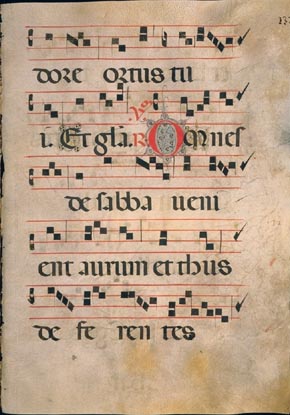 dore ortus tu
i. Et gla. R Omnes
de sabba veni
ent aurum et thus
de fe ren tes